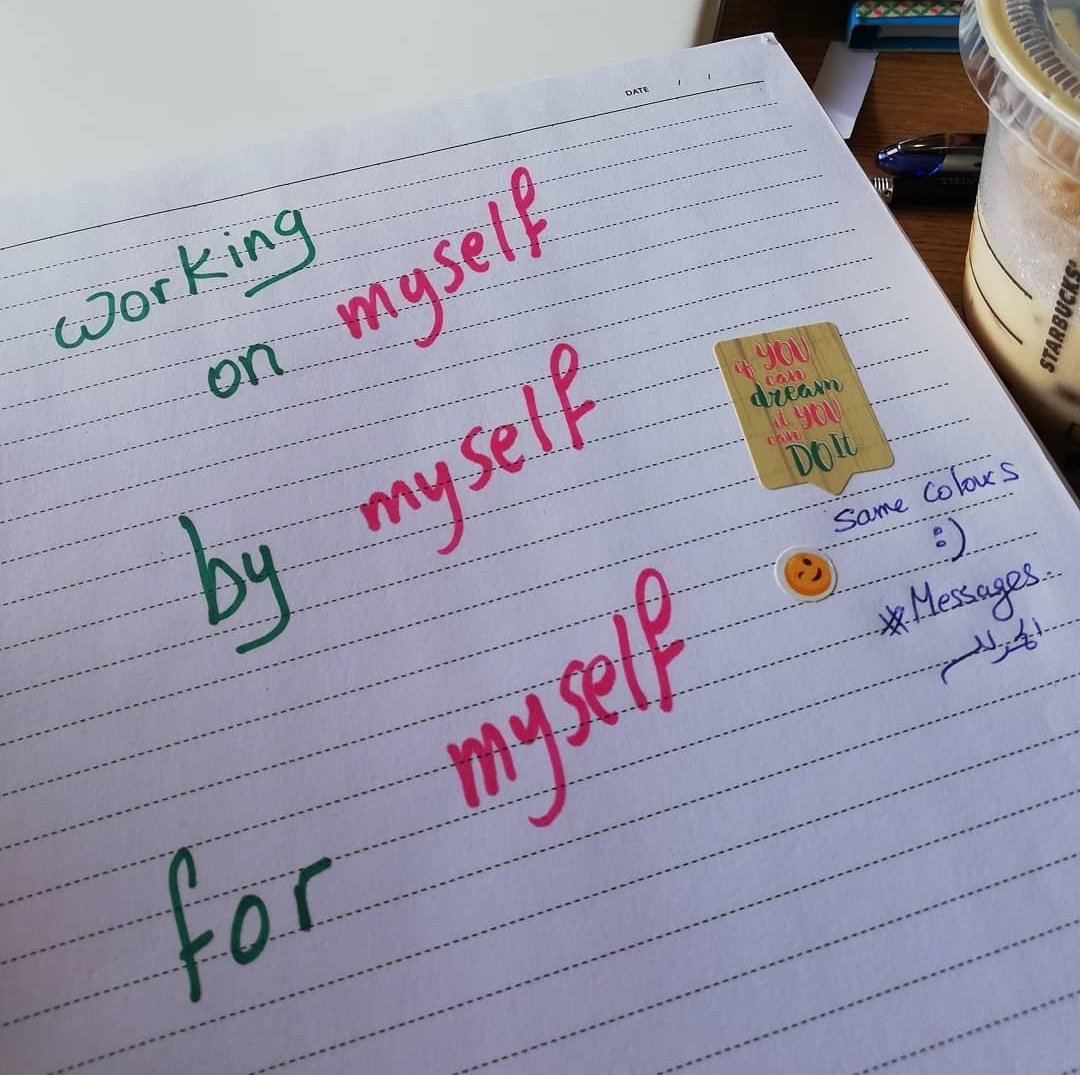 DATE / /
working
on myself
by myself
for myself
if YOU
can
dream
it YOU
can
DO It
same colours
:)
#Messages.
STARBUCKS